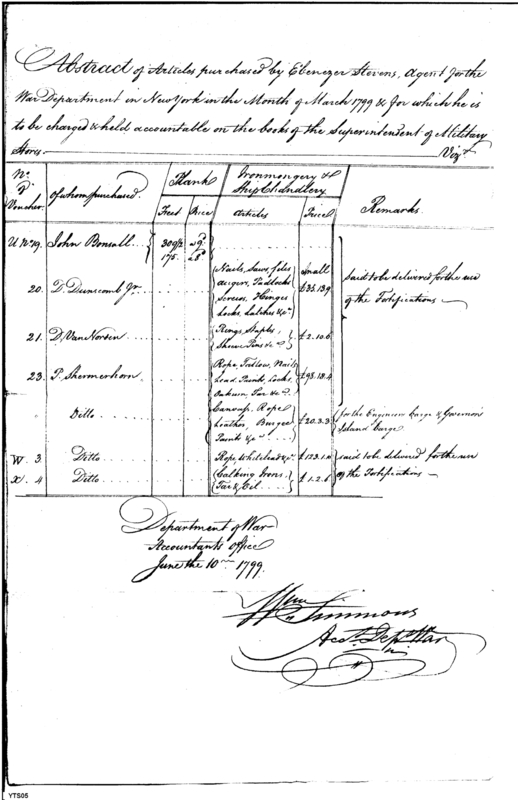 Abstract of Articles purchased by Ebenezer Stevens, Agent for the
War Department in New York in the Month of March 1799 & for which he is
to be charged & held accountable on the books of the Superintendent of Military
Stores. Vizt.
No. of Voucher. Of whom purchased. Plank Feet Price Ironmongery & Ship Chandlery Articles Price Remarks
U No 19. John Bonsall 309½ 29d
175. 28d
20. D. Dunscomb Jr. Nails, Saws, files
Augers, Padlocks
Screws, Hinges
Locks, Latches &ca small £35.13.9
said to be delivered for the use
of the Fortifications
21. D. Van Norden Rings, Staples,
Pins &ca £2.10.6
23. P. Shermerhorn Rope, Tallow, Nails
Lead, Paints, Locks,
Oakum, Tar &ca £98.18.4
Ditto Canvass, Rope
Leather, Burgee
Paints &ca £20.3.3 for the Engineers barge & Governors
Island barge
W 3. Ditto Rope, Whitelead &ca £123.1.
said to be delivered for the use
of the Fortifications
X. 4 Ditto Calking Irons,
Tar & Oil £1.2.6
Department of War
Accountants Office
June the 10th 1799.
Wm Simmons
Acct. Dept War
YTS05